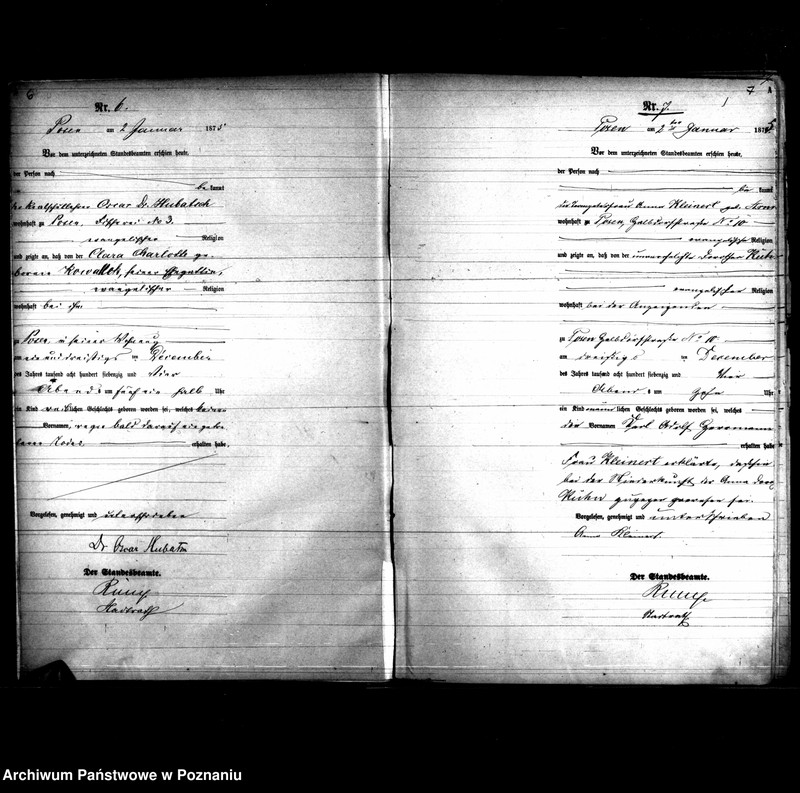 6
Nr. 6.
Posen am 2 Januar 1875
Vor dem unterzeichneten Standesbeamten erschien heute,
der Person nach
bekannt
Oscar Dr. Hubatsch
wohnhaft zu Posen, Fischerei No 3.
evangelischer Religion
und zeigte an, daß von der Clara Charlotte ge-
borenen Kowalleck, seiner Ehegattin,
evangelischer Religion
wohnhaft bei ihm
zu Posen in seiner Wohnung
am ein und dreißigs ten December
des Jahres tausend acht hundert siebenzig und vier
Abends um fünf ein halb Uhr
ein Kind weiblichen Geschlechts geboren worden sei, welches keinen
Vornamen, wegen bald darauf eingetre-
tenen Todes erhalten habe.
Vorgelesen, genehmigt und unterschrieben
Dr Oscar Hubatsch
Der Standesbeamte.
Stadtrath
7
Nr. 7.
Posen am 2ten Januar 1875
Vor dem unterzeichneten Standesbeamten erschien heute,
der Person nach
bekannt
die Anna Kleinert geb.
wohnhaft zu Posen, Halbdorfstraße No 10
evangelischer Religion
und zeigte an, daß von der unverehelichte Dorothea Kühn
evangelischer Religion
wohnhaft bei der Anzeigenden
zu Posen Halbdorfstraße No 10
am dreißigs ten December
des Jahres tausend acht hundert siebenzig und vier
Abends um zehn Uhr
ein Kind männlichen Geschlechts geboren worden sei, welches
die Vornamen Karl Adolf Hermann
erhalten habe
Frau Kleinert erklärte, daß sie
bei der Niederkunft der Anna
Kühn zugegen gewesen sei.
Vorgelesen, genehmigt und unterschrieben
Anna Kleinert.
Der Standesbeamte.
Stadtrath
Archiwum Państwowe w Poznaniu